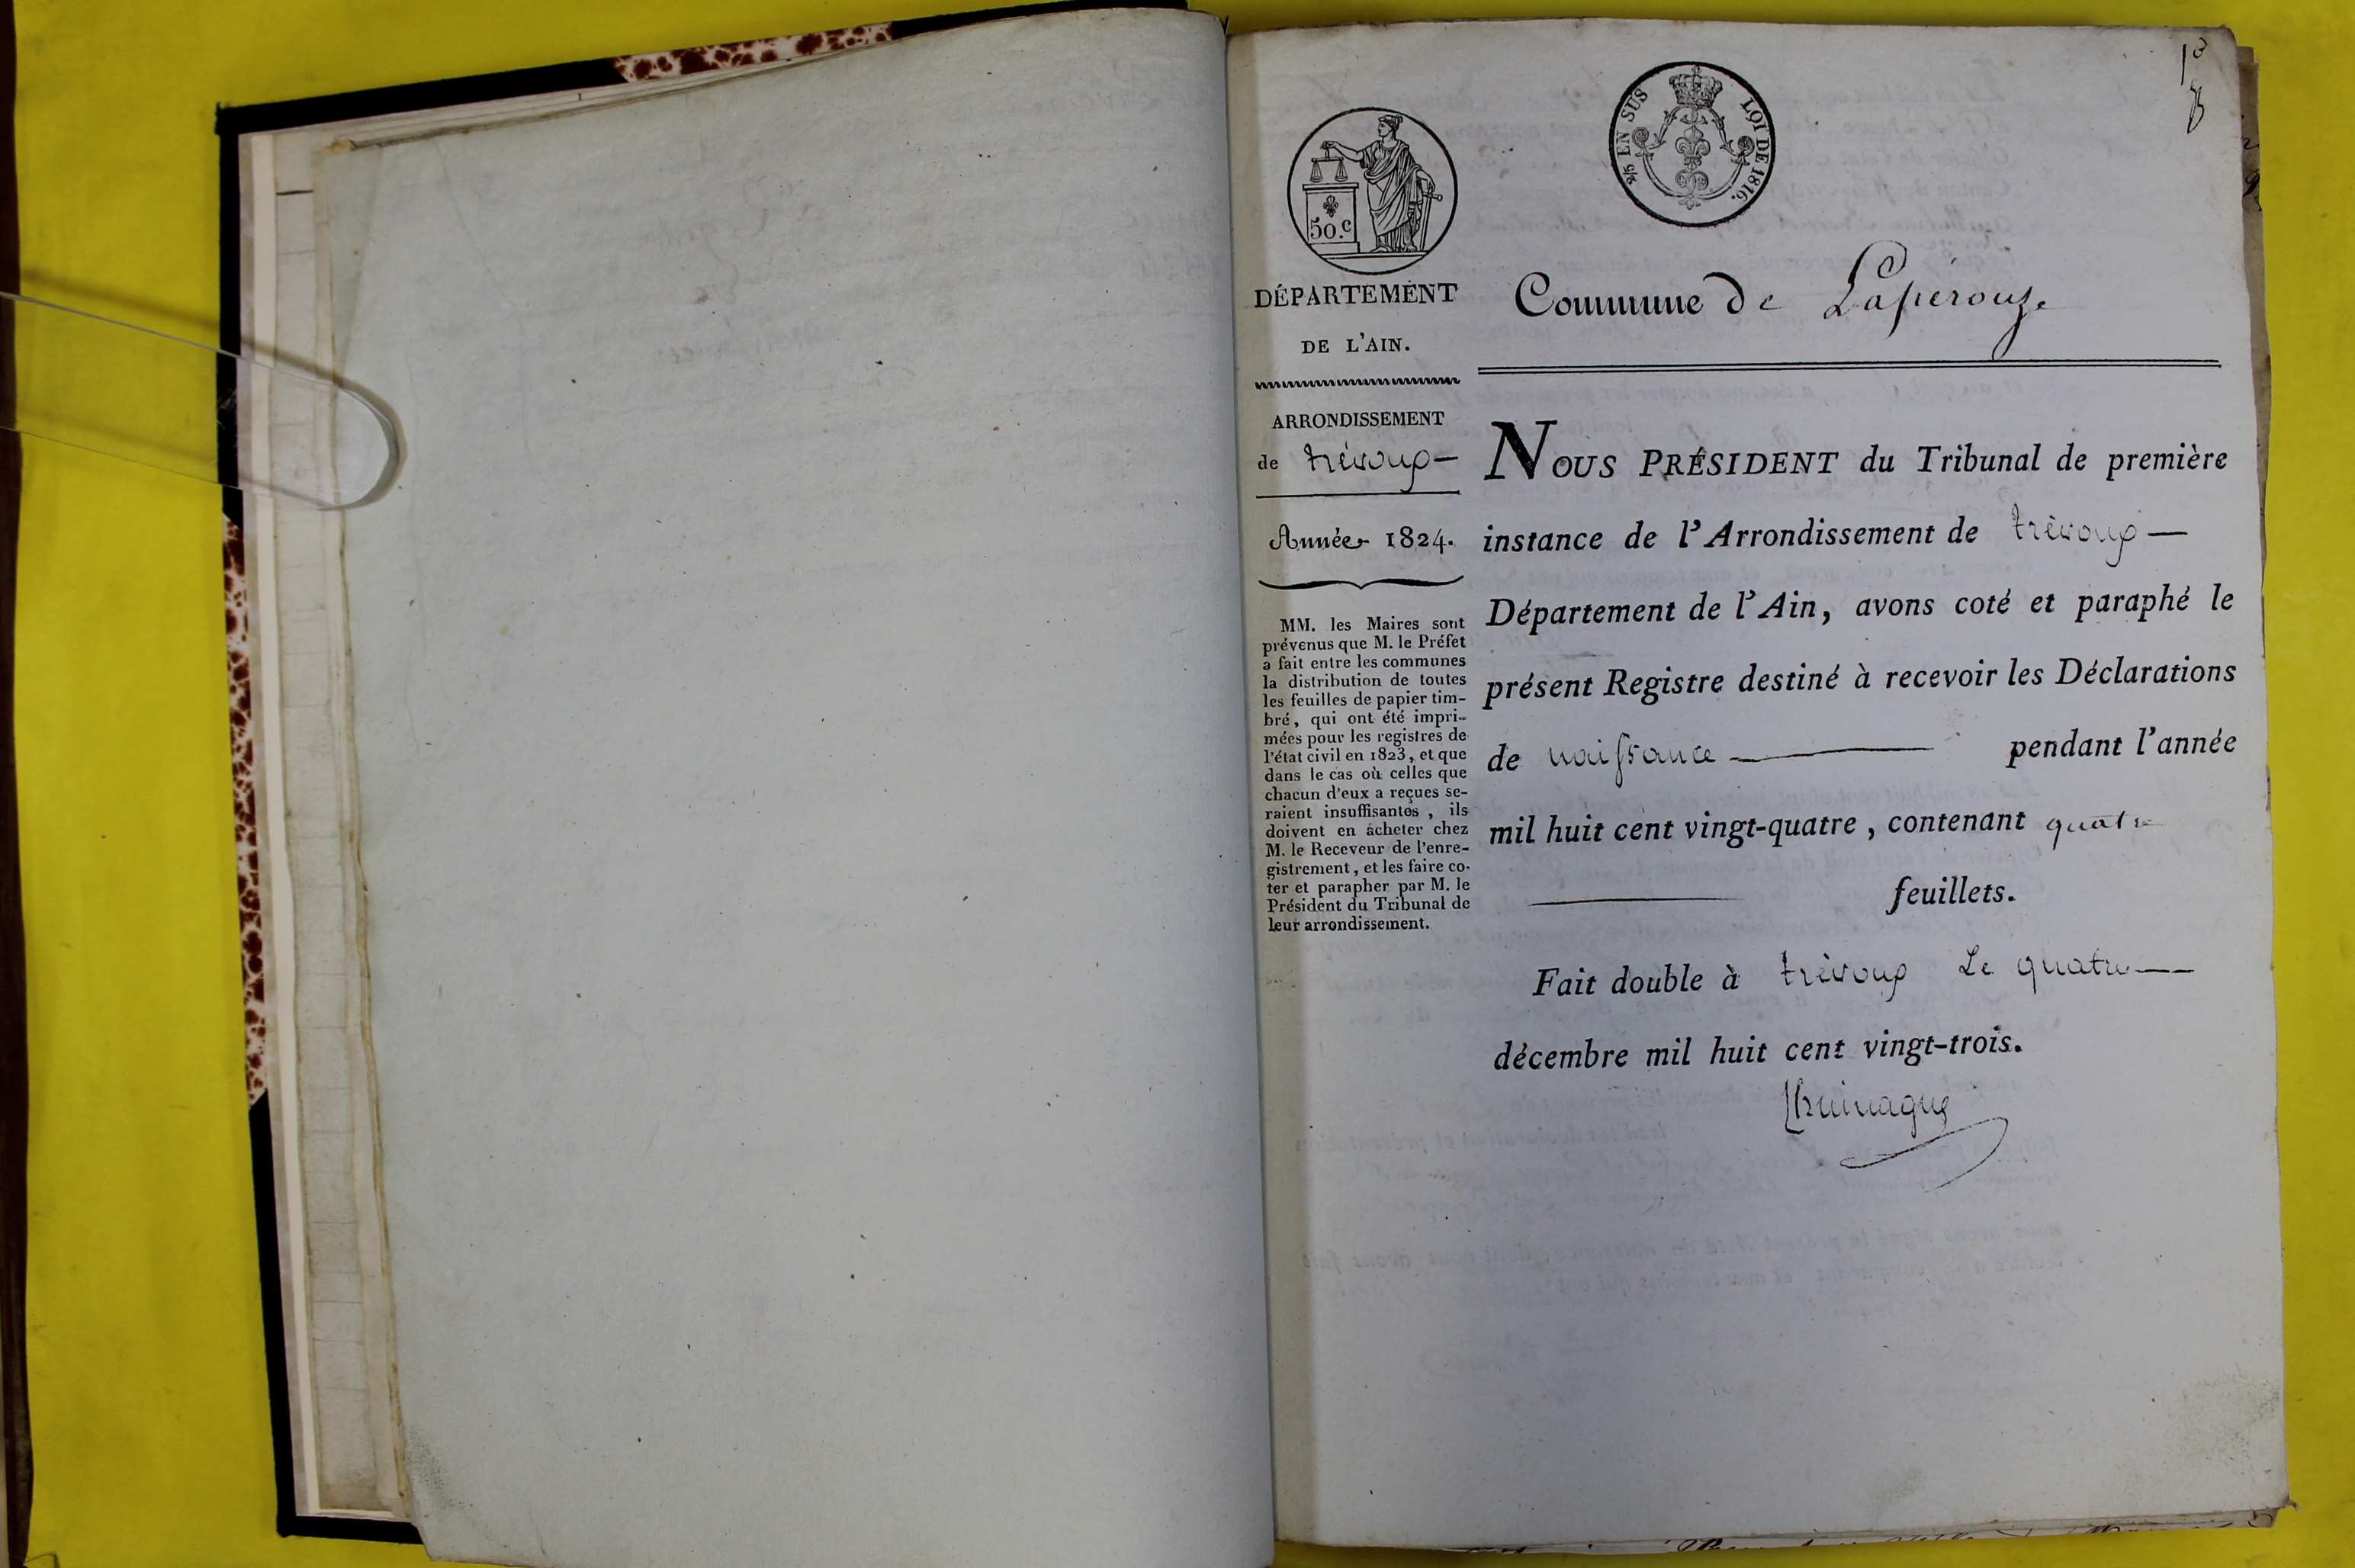 1e
50.c
2/5 EN SUS LOI DE 1816.
DÉPARTEMENT
DE L'AIN.
ARRONDISSEMENT
de trévoux
Année 1824.
MM. les Maires sont
prévenus que M. le Préfet
a fait entre les communes
la distribution de toutes
les feuilles de papier tim-
bré, qui ont été impri-
mées pour les registres de
l'état civil en 1823, et que
dans le cas où celles que
chacun d'eux a reçues se-
raient insuffisantes, ils
doivent en acheter chez
M. le Receveur de l'enre-
gistrement, et les faire co-
ter et parapher par M. le
Président du Tribunal de
leur arrondissement.
Commune de Laperouze
NOUS PRÉSIDENT du Tribunal de première
instance de l'Arrondissement de trévoux
Département de l'Ain, avons coté et paraphé le
présent Registre destiné à recevoir les Déclarations
de naissance pendant l'année
mil huit cent vingt-quatre, contenant quatre
feuillets.
Fait double à trévoux Le quatre
décembre mil huit cent vingt-trois.